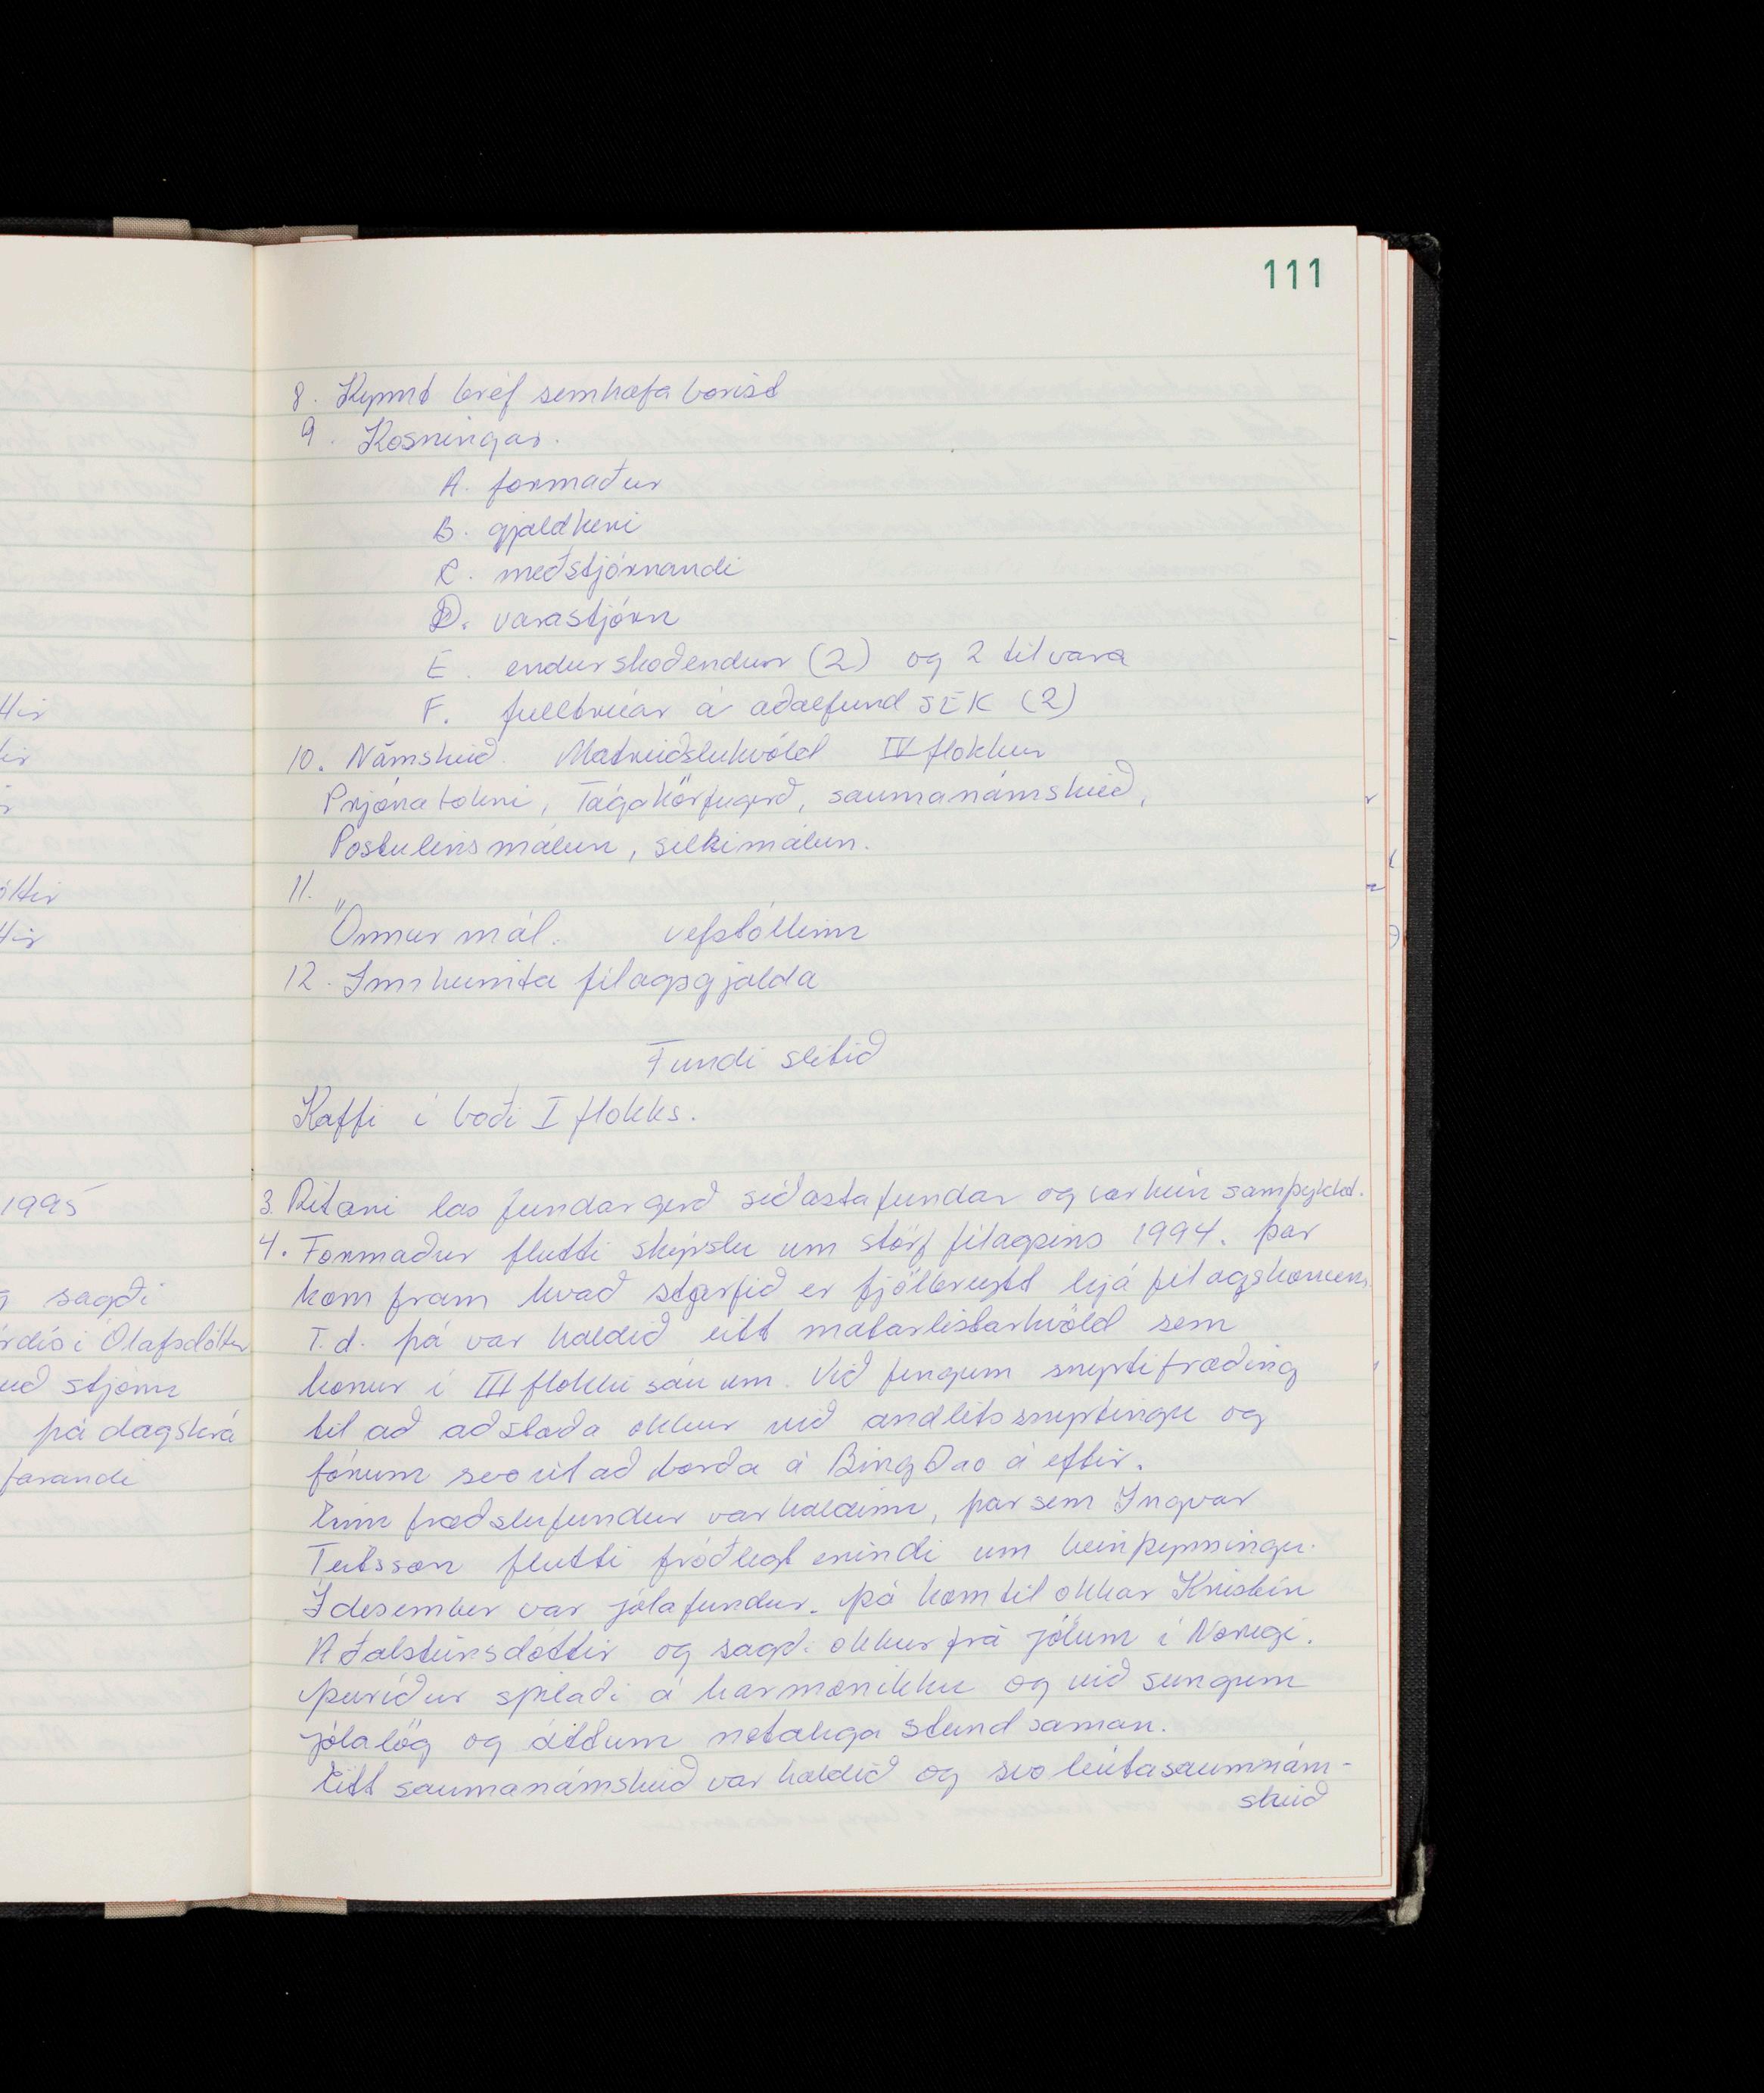 111
8. Kynnt bréf sem hafa borist
9. Kosningar.
A. formaður
B. gjaldkeri
C. meðstjórnandi
D. varastjórn
E. endurskoðendur (2) og 2 til vara
F. fulltrúar á aðalfund SEK (2)
10. Námskeið. Matreiðslukvöld IV flokkur
Prjónatækni, Tágakörfugerð, saumanámskeið,
Postulínsmálun, silkimálun.
11.
Önnur mál. vefstóllinn
12. Innheimta félagsgjalda
Fundi slitið
Kaffi í boði I flokks.
3. Ritari las fundargerð síðasta fundar og var hún samþykkt.
4. Formaður flutti skýrslu um störf félagsins 1994. þar
kom fram hvað starfið er fjölbreytt hjá félagskonum.
T.d. þá var haldið eitt matarlistarkvöld sem
konur í III flokki sáu um. Við fengum snyrtifræðing
til að aðstoða okkur við andlitssnyrtingu og
fórum svo út að borða á Bing Dao á eftir.
Einn fræðslufundur var haldinn, þar sem Ingvar
Teitsson flutti fróðlegt erindi um beinþynningu.
Í desember var jólafundur. þá kom til okkar Kristín
Aðalsteinsdóttir og sagði okkur frá jólum í Noregi.
þuríður spilaði á harmonikku og við sungum
jólalög og áttum notalega stund saman.
Eitt saumanámskeið var haldið og svo bútasaumnám-
skeið
ttir
ir
r
óttir
ttir
1995
sagði
rdísi Ólafsdóttur
stjórn
þá dagskrá
farandi